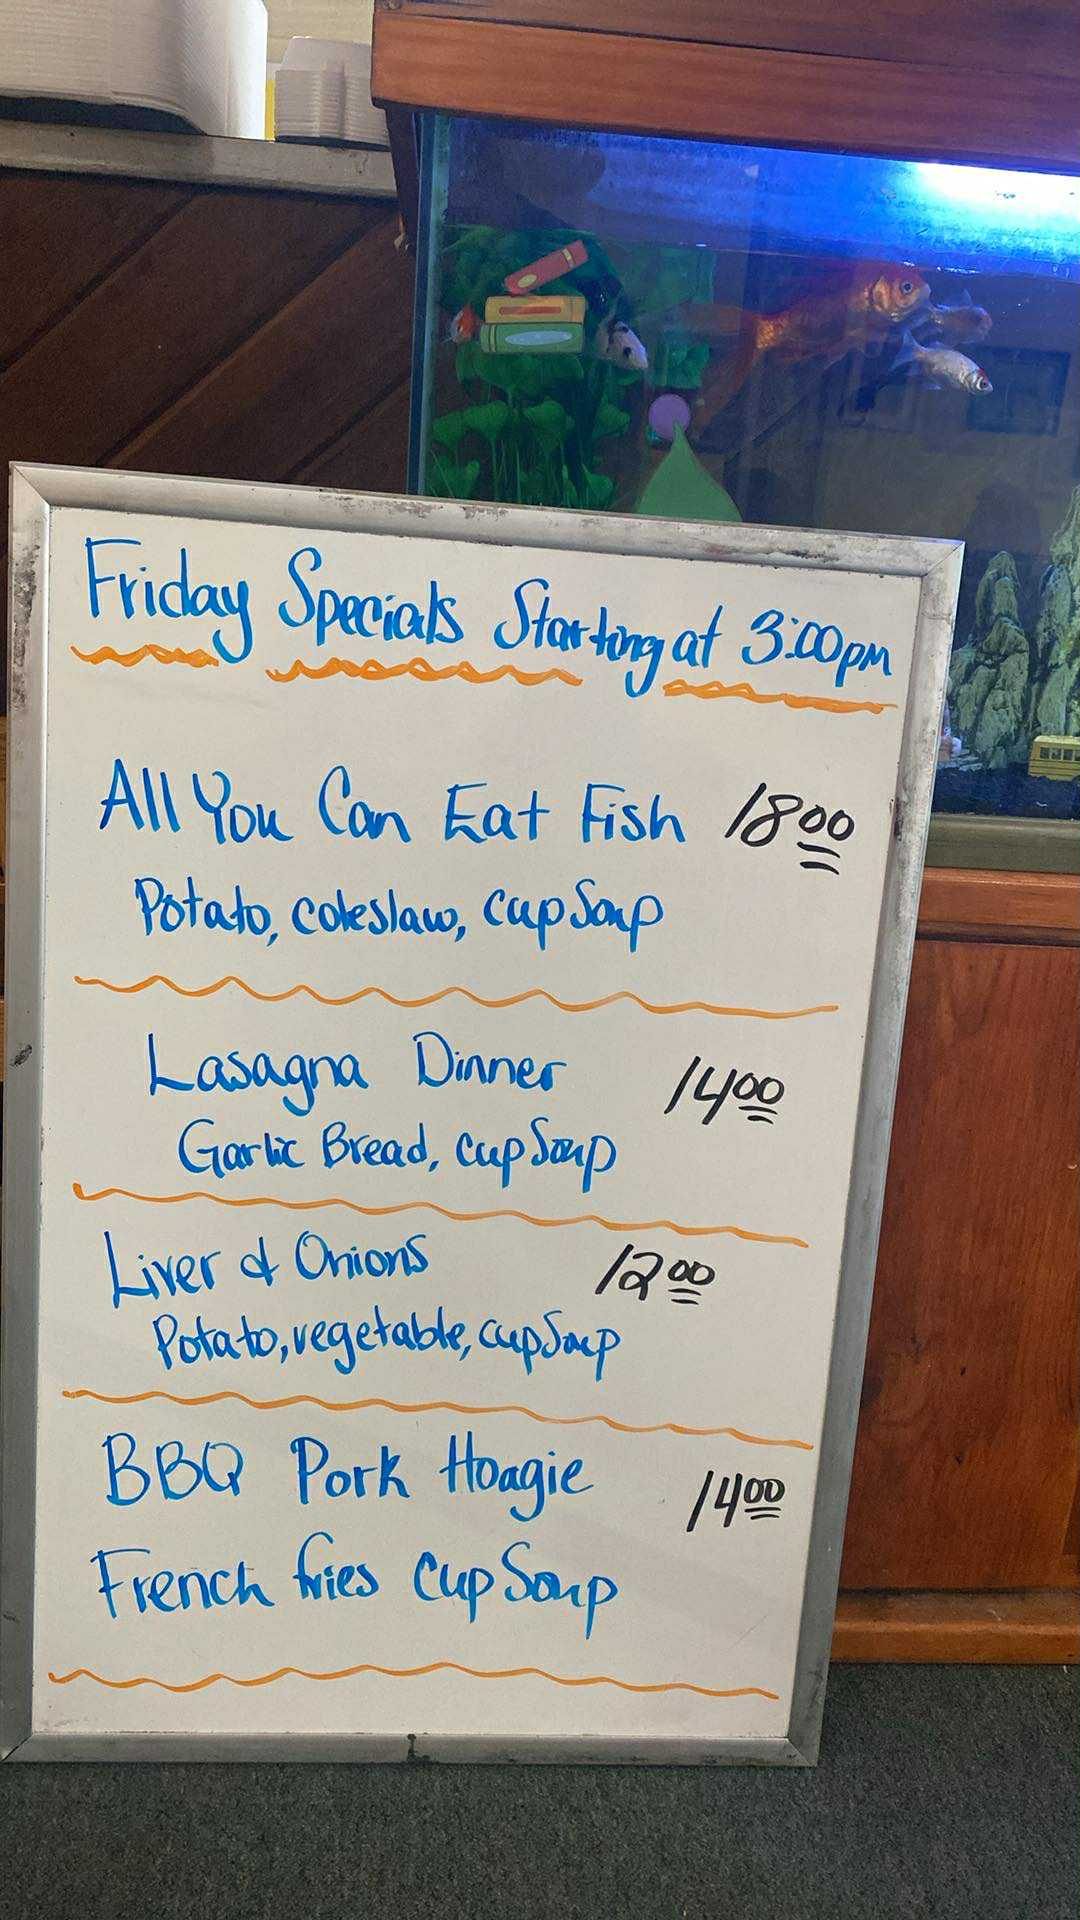 Friday Specials Starting at 3:00pm
All You Can Eat Fish 18 00
Potato, coleslaw, cup Soup
Lasagna Dinner 14 00
Garlic Bread, cup Soup
Liver & Onions 12 00
Potato, vegetable, cup Soup
BBQ Pork Hoagie 14 00
French fries cup Soup